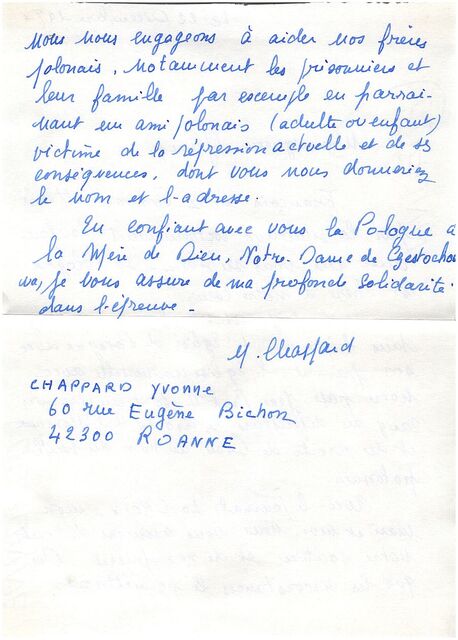 Nous nous engageons à aider nos frères
polonais, notamment les prisonniers et
leur famille par exemple en parrai-
nant un ami polonais (adulte ou enfant)
victime de la répression actuelle et de ses
conséquences, dont vous nous donneriez
le nom et l'adresse.
En confiant avec vous la Pologne à
la Mère de Dieu, Notre-Dame de Czestocho
wa, je vous assure de ma profonde solidarité
dans l'épreuve -
Y. Chappard
CHAPPARD Yvonne
60 rue Eugène Bichon
42300 ROANNE